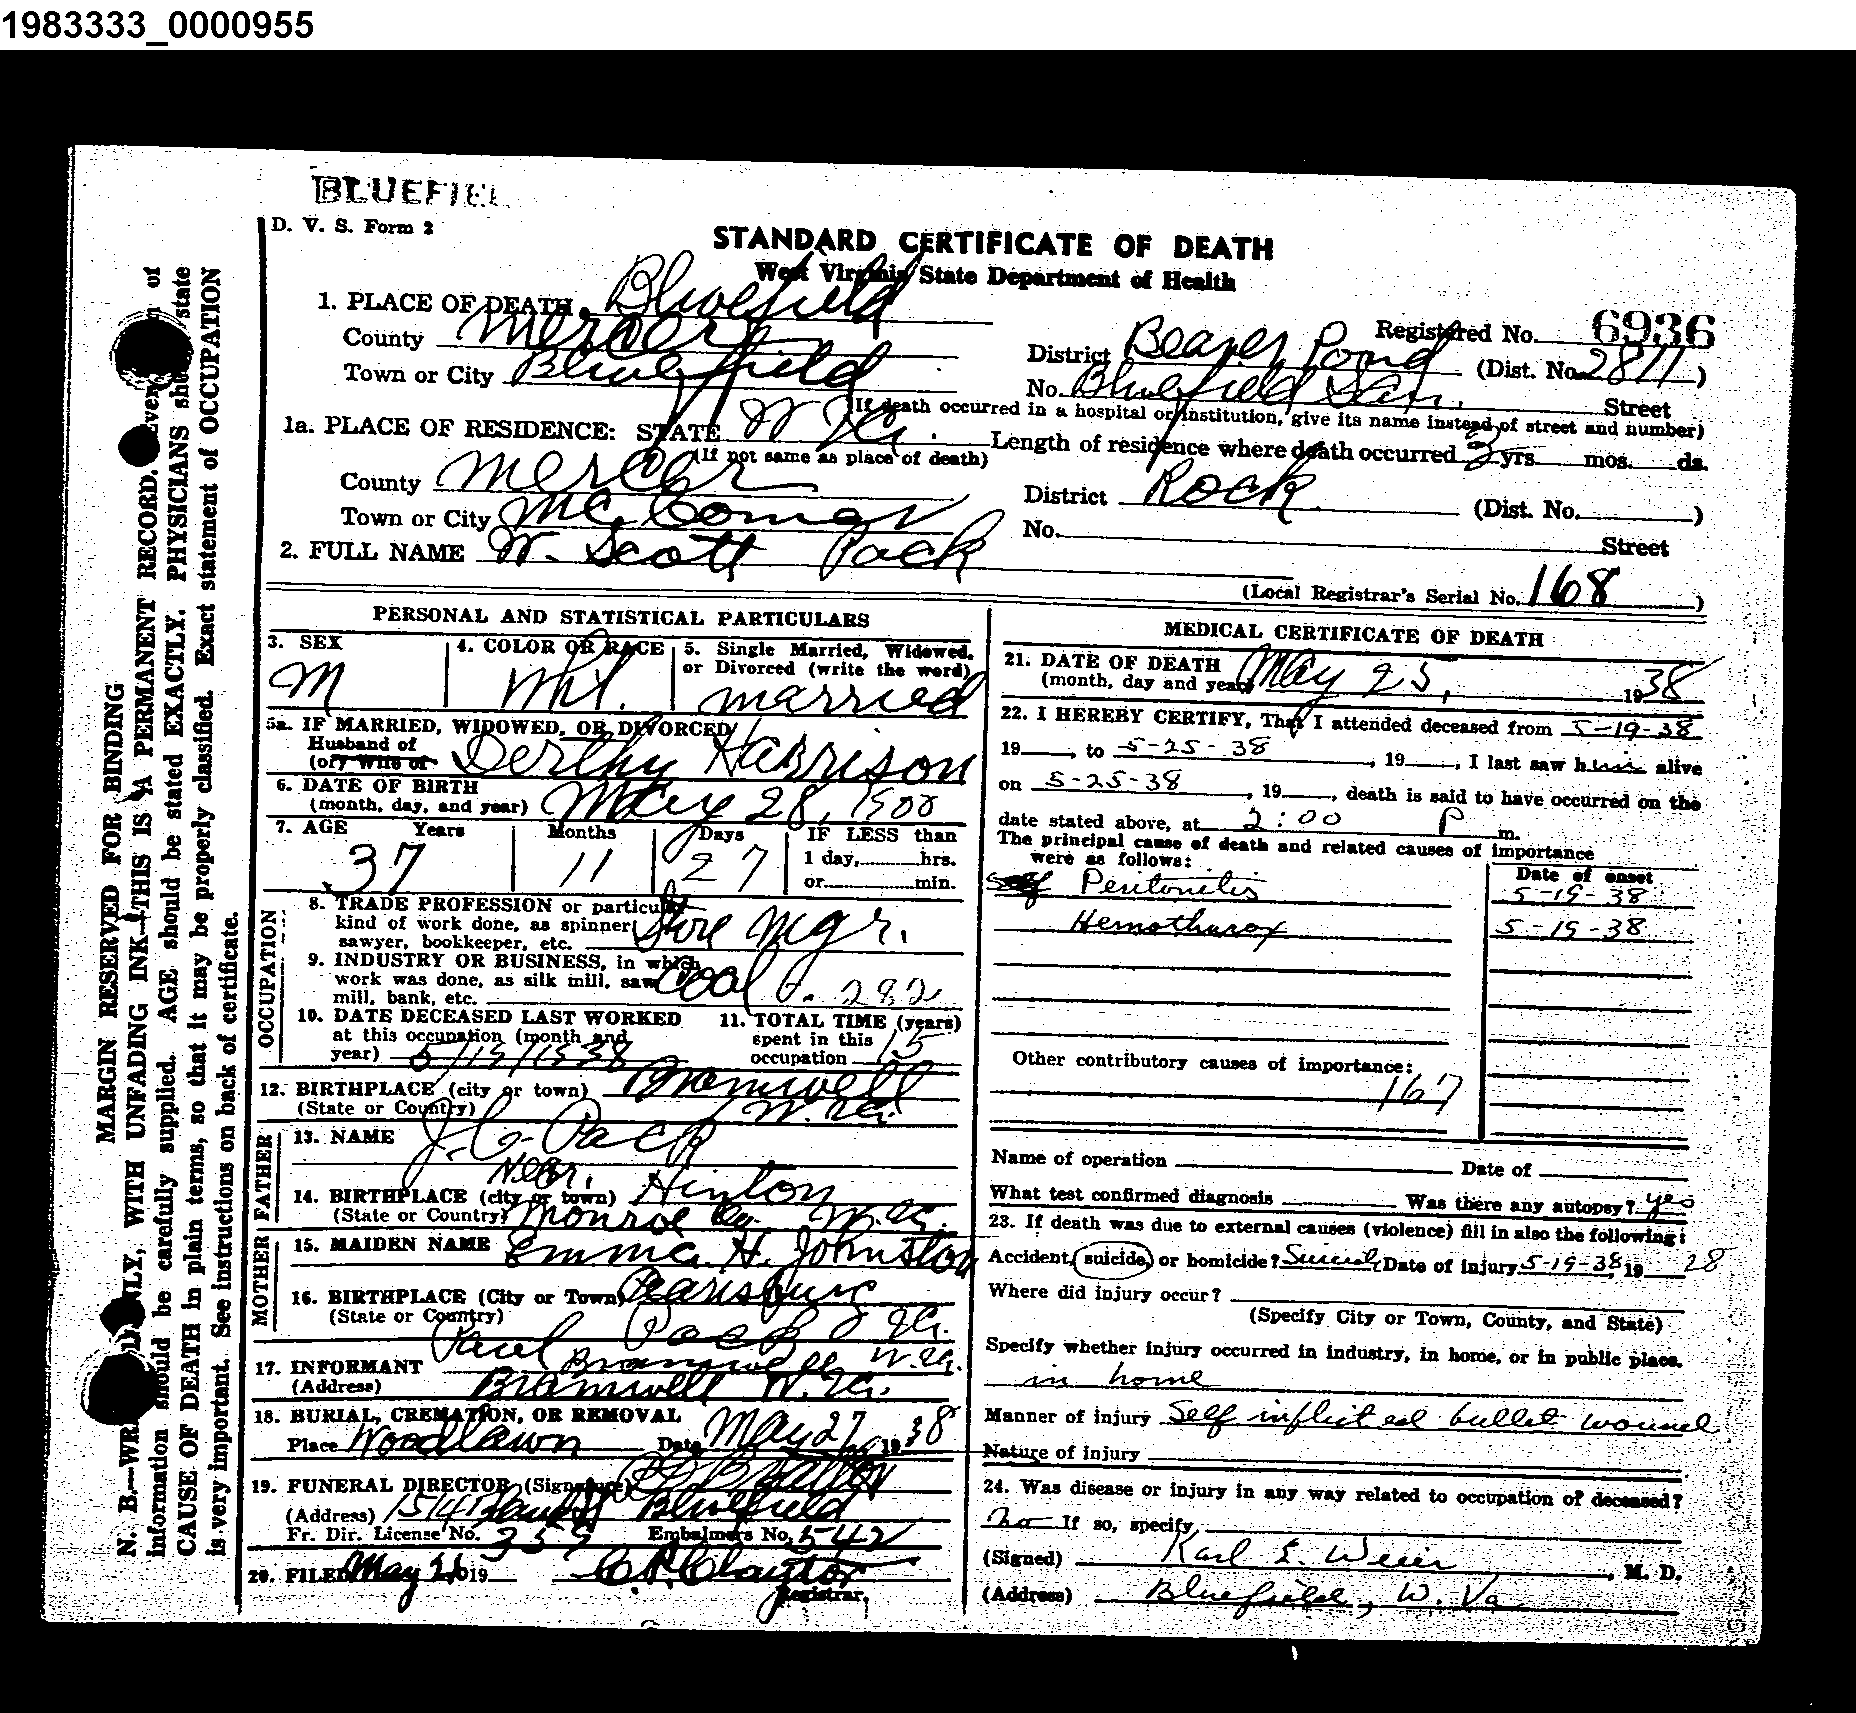 1983333_0000955
BLUEFIEL
D. V. S. Form 2
STANDARD CERTIFICATE OF DEATH
West Virginia State Department of Health
1. PLACE OF DEATH Bluefield
Registered No. 6936
County Mercer
District Beaver Pond (Dist. No. 2811)
Town or City Bluefield
No. Bluefield San. Street
(If death occurred in a hospital or institution, give its name instead of street and number)
1a. PLACE OF RESIDENCE: STATE W. Va.
(If not same as place of death)
Length of residence where death occurred 3 yrs. mos. ds.
County Mercer
District Rock (Dist. No. )
Town or City Mc Comas
No. Street
2. FULL NAME W. Scott Pack
(Local Registrar's Serial No. 168 )
PERSONAL AND STATISTICAL PARTICULARS
3. SEX
M
4. COLOR OR RACE
Wht.
5. Single Married, Widowed,
or Divorced (write the word)
married
5a. IF MARRIED, WIDOWED, OR DIVORCED
Husband of
(or) Wife of Derthy Harrison
6. DATE OF BIRTH
(month, day, and year) May 28, 1900
7. AGE Years Months Days IF LESS than
37 11 27
1 day, hrs.
or min.
OCCUPATION
8. TRADE PROFESSION or particular
kind of work done, as spinner,
sawyer, bookkeeper, etc. Store Mgr.
9. INDUSTRY OR BUSINESS, in which
work was done, as silk mill, saw
mill, bank, etc. Coal Co. 282
10. DATE DECEASED LAST WORKED
at this occupation (month and
year) 5/19/1938
11. TOTAL TIME (years)
spent in this
occupation 15
12. BIRTHPLACE (city or town) Bramwell
(State or Country) W. Va.
FATHER
13. NAME J. C. Pack
Near
14. BIRTHPLACE (city or town) Hinton
(State or Country) Monroe Co. W. Va.
MOTHER
15. MAIDEN NAME Emma H. Johnston
16. BIRTHPLACE (City or Town) Pearisburg
(State or Country) Va.
Paul Pack
17. INFORMANT Bramwell W. Va.
(Address) Bramwell W. Va.
18. BURIAL, CREMATION, OR REMOVAL
Place Woodlawn Date May 27 1938
19. FUNERAL DIRECTOR (Signature)
(Address) 1541 Bland St Bluefield
Fr. Dir. License No. 359 Embalmers No. 542
20. FILED May 26 19
C. P. Claytor
Registrar.
MEDICAL CERTIFICATE OF DEATH
21. DATE OF DEATH
(month, day and year) May 25, 1938
22. I HEREBY CERTIFY, That I attended deceased from 5-19-38
19 , to 5-25-38 , 19 , I last saw him alive
on 5-25-38 , 19 , death is said to have occurred on the
date stated above, at 2:00 P m.
The principal cause of death and related causes of importance
were as follows:
Date of onset
Peritonitis 5-19-38
Hemothorax 5-19-38
Other contributory causes of importance:
167
Name of operation Date of
What test confirmed diagnosis Was there any autopsy? yes
23. If death was due to external causes (violence) fill in also the following:
Accident, suicide, or homicide? Suicide Date of injury 5-19-38 19 28
Where did injury occur?
(Specify City or Town, County, and State)
Specify whether injury occurred in industry, in home, or in public place.
in home
Manner of injury Self inflicted bullet wound
Nature of injury
24. Was disease or injury in any way related to occupation of deceased?
no If so, specify
(Signed) Karl E. Weier , M. D.
(Address) Bluefield, W. Va
MARGIN RESERVED FOR BINDING
N. B.—WRITE PLAINLY, WITH UNFADING INK—THIS IS A PERMANENT RECORD. Every of
information should be carefully supplied. AGE should be stated EXACTLY. PHYSICIANS should state
CAUSE OF DEATH in plain terms, so that it may be properly classified. Exact statement of OCCUPATION
is very important. See instructions on back of certificate.